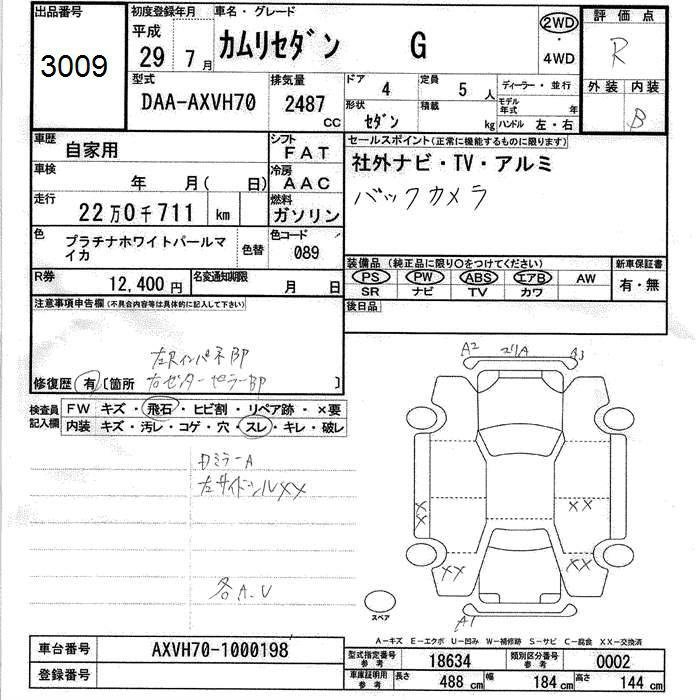 出品番号
3009
初度登録年月
平成
29年 7月
車名・グレード
カムリセダン G
2WD
・
4WD
評価点
R
外装 内装
B
型式
DAA-AXVH70
排気量
2487
CC
ドア
4
定員
5人
形状
セダン
積載
kg
ディーラー・並行
モデル年式 年
ハンドル 左・右
車歴
自家用
シフト
FAT
車検
年 月( 日)
冷房
AAC
走行
22万0千711 km
燃料
ガソリン
色
プラチナホワイトパールマイカ
色替
色コード
089
R券
12,400円
名変通知期限
月 日
セールスポイント(正常に機能するものに限ります)
社外ナビ・TV・アルミ
バックカメラ
装備品(純正品に限り○をつけてください)
PS PW ABS エアB AW
SR ナビ TV カワ
新車保証書
有・無
後日品
注意事項申告欄(不具合内容等は具体的に記入して下さい)
左Rインパネ部
修復歴 有 [箇所 右センターピラー部 ]
検査員記入欄
FW キズ・飛石・ヒビ割・リペア跡・×要
内装 キズ・汚レ・コゲ・穴・スレ・キレ・破レ
ミラーA
左サイドシルXX
各A.U
A2
A3
XX
XX
XX
XX
A1
スペア
A-キズ E-エクボ U-凹み W-補修跡 S-サビ C-腐食 XX-交換済
車台番号
AXVH70-1000198
登録番号
型式指定番号 参考
18634
類別区分番号 参考
0002
車庫証明用 参考
長さ
488 cm
幅
184 cm
高さ
144 cm